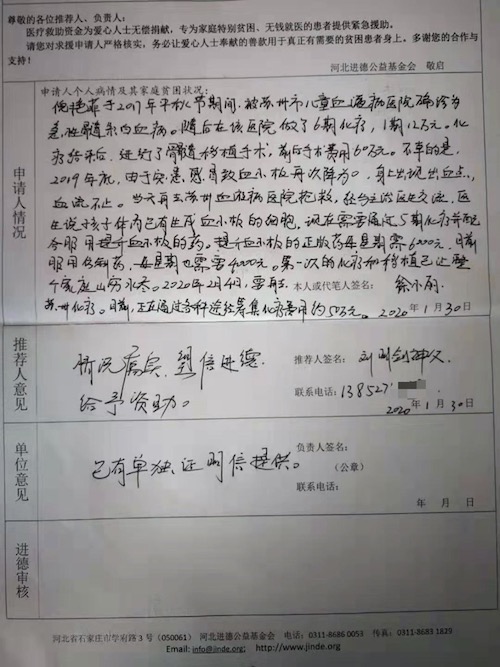 尊敬的各位推荐人、负责人：
医疗救助资金为爱心人士无偿捐献，专为家庭特别贫困、无钱就医的患者提供紧急援助。
请您对求援申请人严格核实，务必让爱心人士奉献的善款用于真正有需要的贫困患者身上。多谢您的合作与
支持！
河北进德公益基金会 敬启
申请人情况
申请人个人病情及其家庭贫困状况：
于2017年平秋节期间，被苏州市儿童血液病医院确诊为
急性髓系白血病。随后在该医院做了6期化疗，1期12万元。化
疗结束后，进行了骨髓移植手术，前后手术费用60万元。不幸的是，
2019年底，由于突患感冒致血小板再次降为0，身上出现出血点，
血流不止。当天再去苏州血液病医院抢救，经与主治医生交流，医
生说孩子体内已有生成血小板的细胞，现在需要通过5期化疗并配
合服用提升血小板的药。提升血小板的正版药每星期需6000元，目前
服用仿制药，每星期也需要4000元。第一次的化疗和移植已让整
个家庭山穷水尽。2020年2月4日，要再去
本人或代笔人签名：徐小丽
苏州化疗。目前，正在通过各种途径筹集化疗费用约50万元。
2020年1月30日
推荐人意见
情况属实，望进德
给予资助。
推荐人签名：刘明剑神父
联系电话：138527
2020年1月30日
单位意见
已有单独证明信提供。
负责人签名：
（公章）
联系电话：
年 月 日
进德审核
河北省石家庄市学府路3号（050061） 河北进德公益基金会 电话：0311-8686 0053 传真：0311-8683 1829
Email: info@jinde.org; http://www.jinde.org